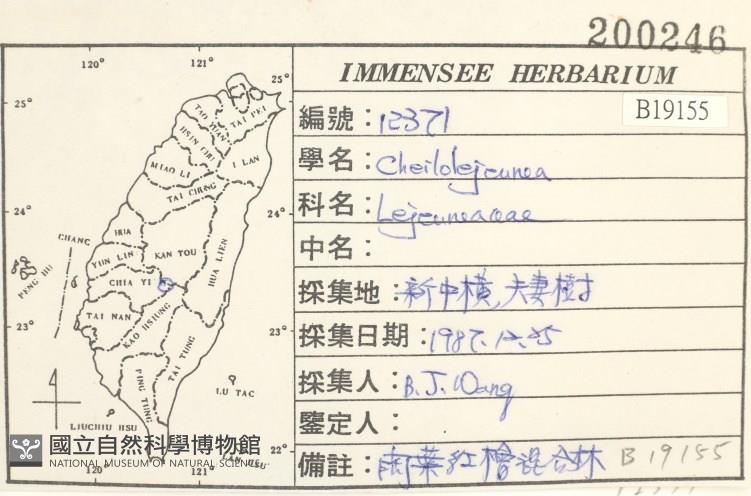 200246
IMMENSEE HERBARIUM
B19155
編號：12371
學名：Cheilolejeunea
科名：Lejeuneaceae
中名：
採集地：新中橫，夫妻樹
採集日期：1987.12.25
採集人：B.J. Wang
鑒定人：
備註：闊葉紅檜混合林 B19155
120° 121°
25° 25°
TAO YUAN
TAI PEI
HSIN CHU
I LAN
MIAO LI
TAI CHUNG
24° 24°
CHANG HUA
YUN LIN
KAN TOU
HUA LIEN
PENG HU
CHIA YI
TAI NAN
KAO HSIUNG
23° 23°
TAI TUNG
PING TUNG
LU TAC
LIUCHIU HSU
國立自然科學博物館
NATIONAL MUSEUM OF NATURAL SCIENCE
22°
120° 121°